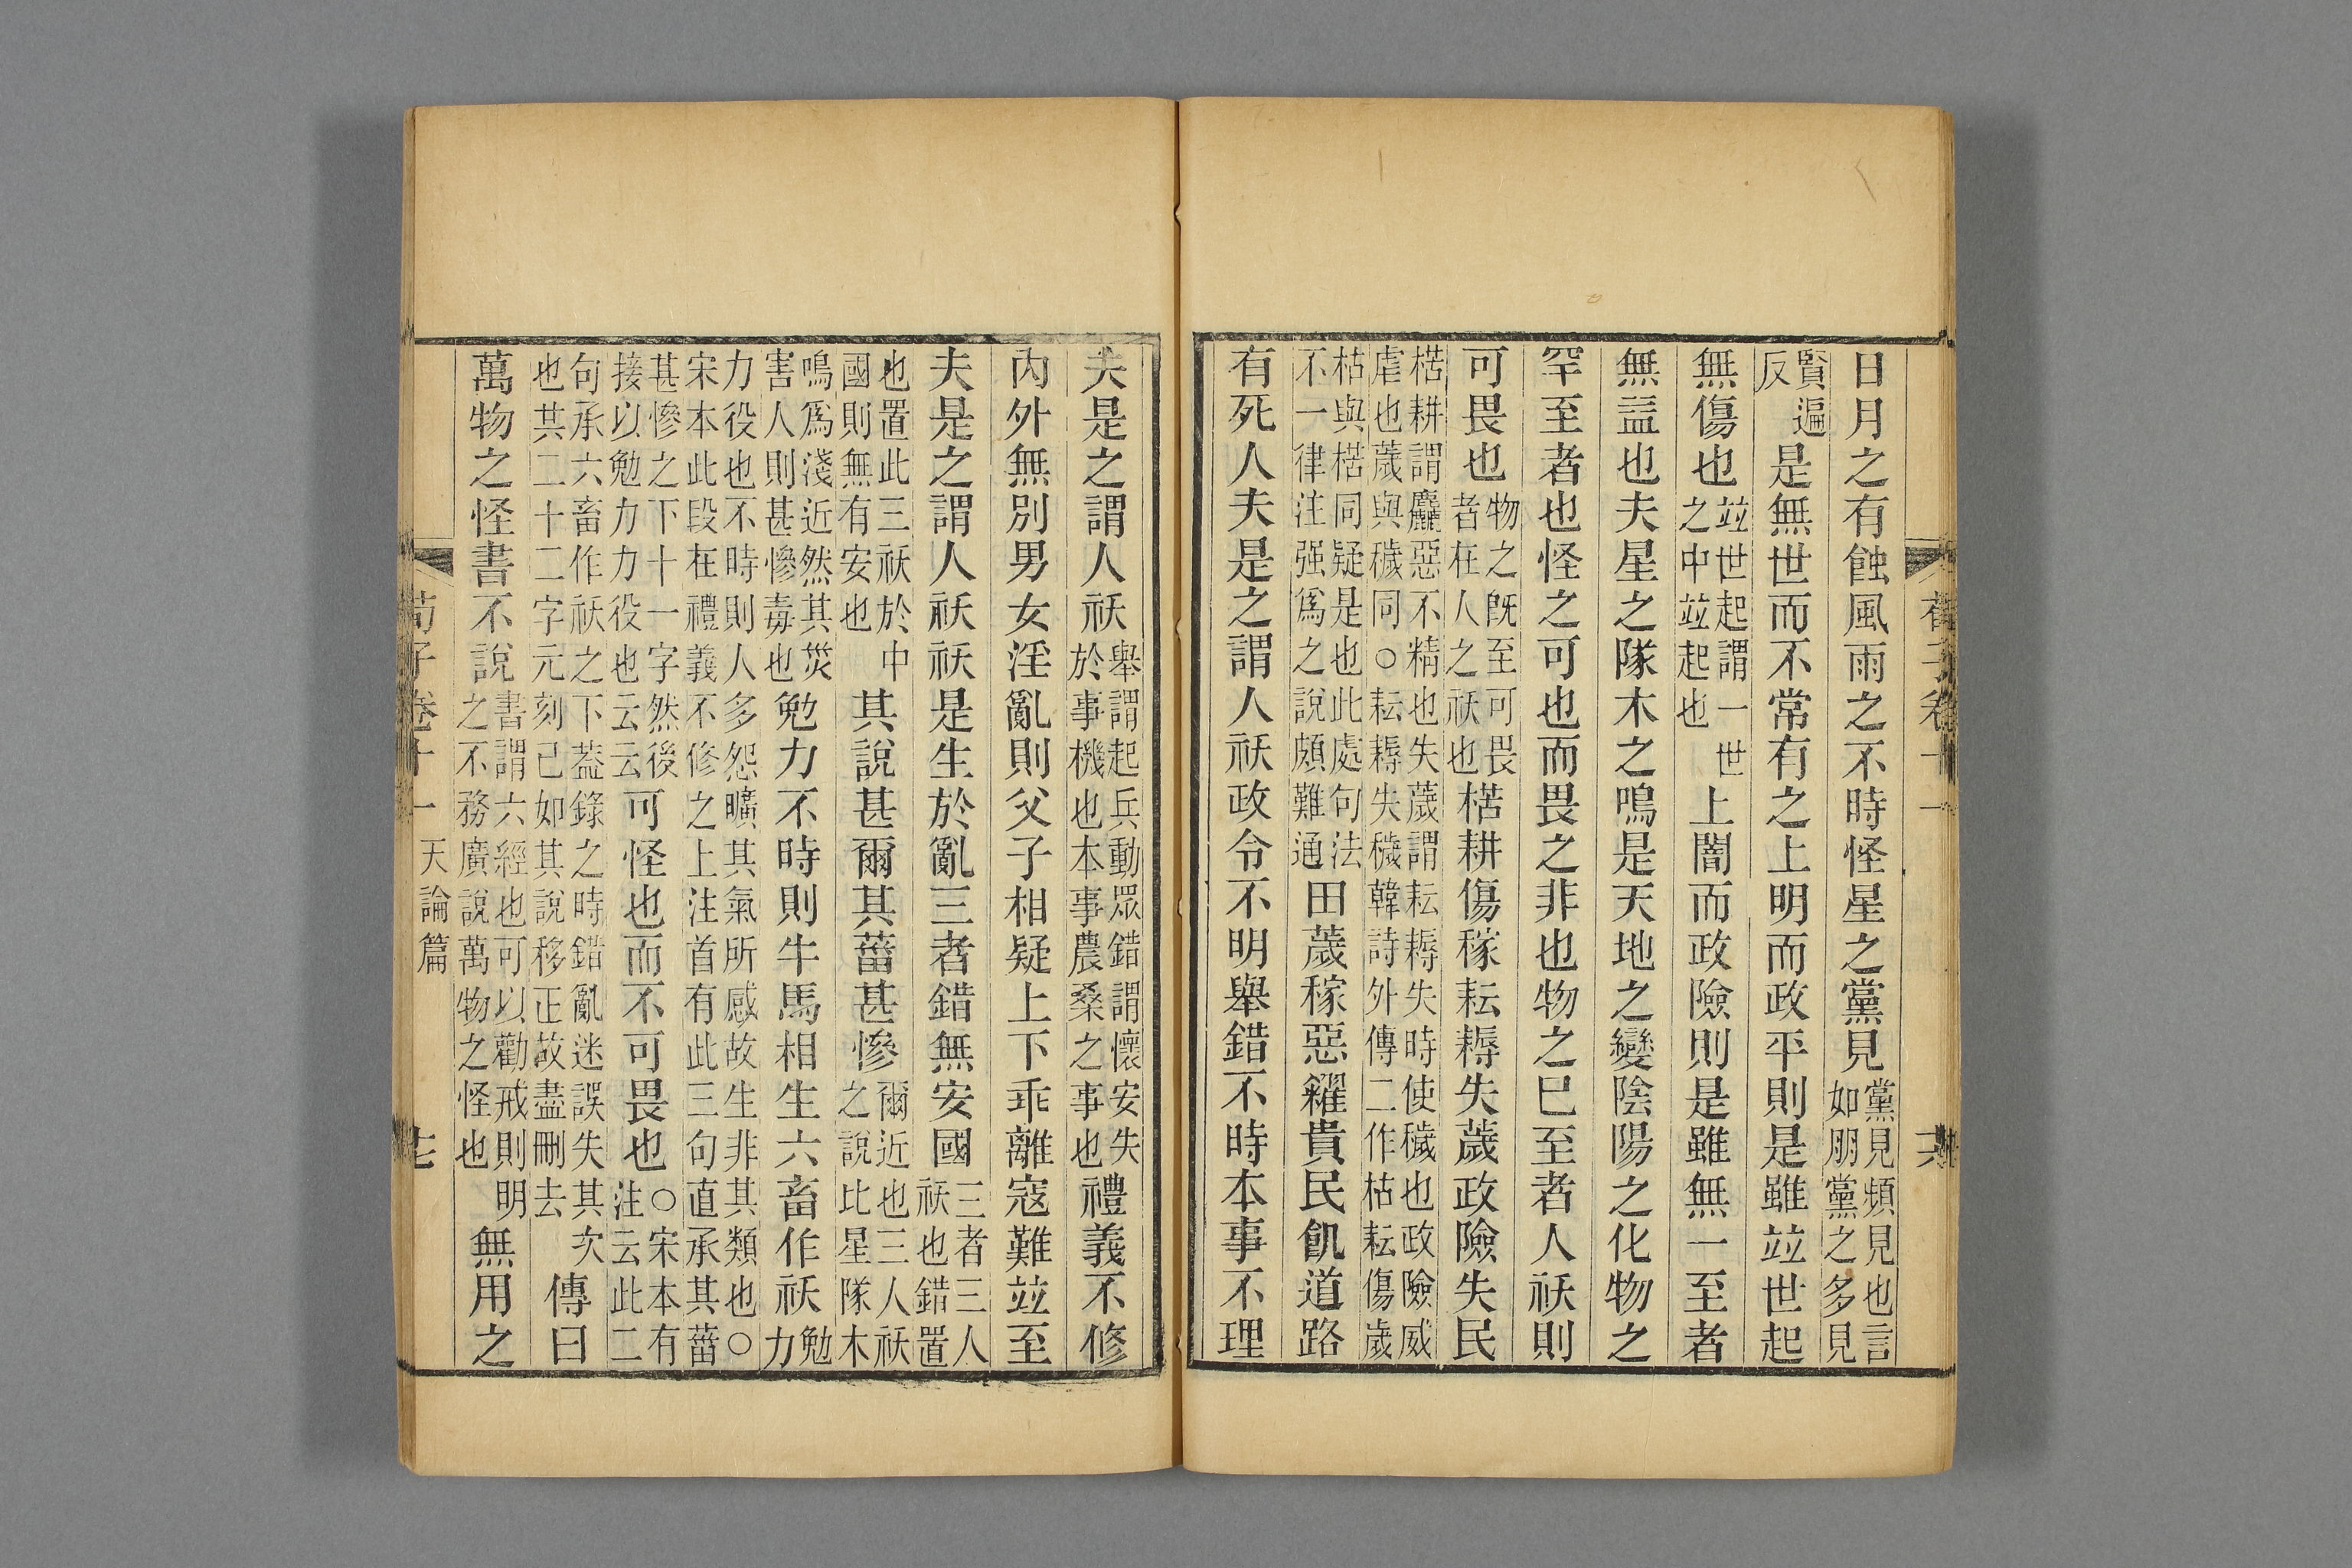 日月之有蝕風雨之不時怪星之黨見黨見頻見也言如朋黨之多見
賢遍反是無世而不常有之上明而政平則是雖竝世起
無傷也竝世起謂一世之中竝起也上闇而政險則是雖無一至者
無益也夫星之隊木之鳴是天地之變陰陽之化物之
罕至者也怪之可也而畏之非也物之已至者人祅則
可畏也物之既至可畏者在人之祅也楛耕傷稼耘耨失薉政險失民
楛耕謂麤惡不精也失薉謂耘耨失時使穢也政險威虐也薉與穢同○耘耨失穢韓詩外傳二作枯耘傷歲
枯與楛同疑是也此處句法不一律注强爲之說頗難通田薉稼惡糴貴民飢道路
有死人夫是之謂人祅政令不明舉錯不時本事不理
夫是之謂人祅舉謂起兵動眾錯謂懷安失於事機也本事農桑之事也禮義不修
內外無別男女淫亂則父子相疑上下乖離寇難竝至
夫是之謂人祅祅是生於亂三者錯無安國三者三人祅也錯置
也置此三祅於中國則無有安也其說甚爾其菑甚慘爾近也三人祅之說比星隊木
鳴爲淺近然其災害人則甚慘毒也勉力不時則牛馬相生六畜作祅勉力
力役也不時則人多怨曠其氣所感故生非其類也○宋本此段在禮義不修之上注首有此三句直承其菑
甚慘之下十一字然後接以勉力力役也云云可怪也而不可畏也○宋本有注云此二
句承六畜作祅之下蓋錄之時錯亂迷誤失其次也其二十二字元刻已如其說移正故盡刪去傳曰
萬物之怪書不說書謂六經也可以勸戒則明之不務廣說萬物之怪也無用之
荀子卷十一 天論篇